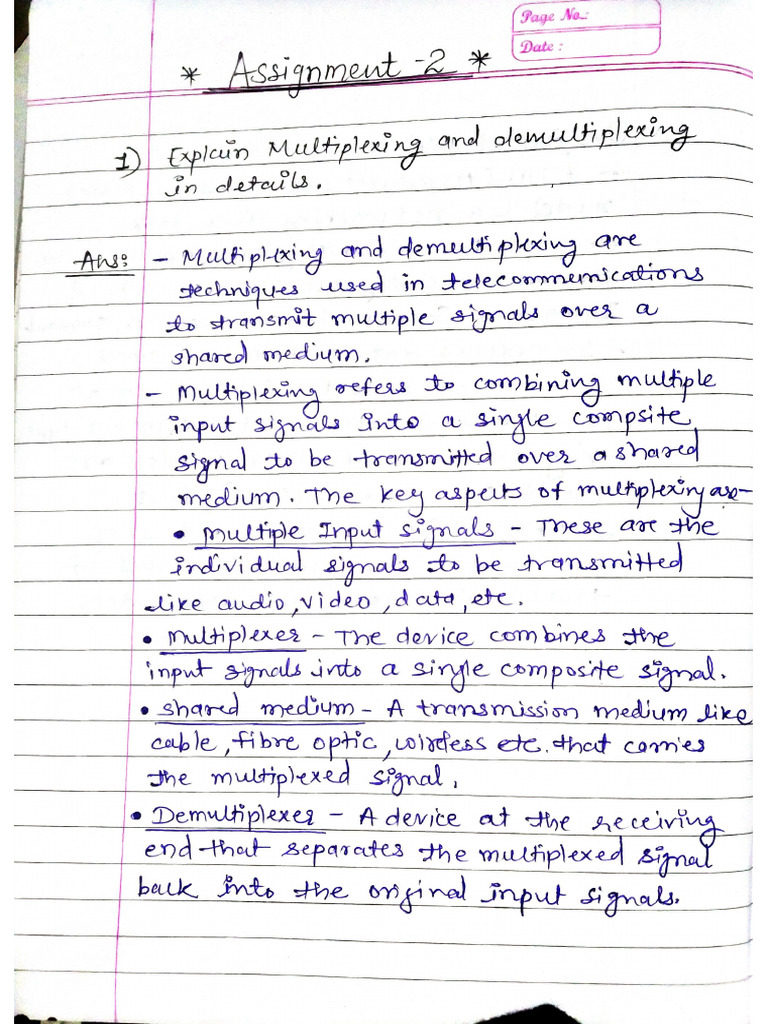 Page No.:
Date :
* Assignment - 2 *
1) Explain Multiplexing and demultiplexing
in details.
Ans: - Multiplexing and demultiplexing are
techniques used in telecommunications
to transmit multiple signals over a
shared medium.
- Multiplexing refers to combining multiple
input signals into a single compsite
signal to be transmitted over a shared
medium. The key aspects of multiplexing are-
• Multiple Input signals - These are the
individual signals to be transmitted
like audio, video, data, etc.
• Multiplexer - The device combines the
input signals into a single composite signal.
• Shared medium - A transmission medium like
cable, fibre optic, wireless etc. that carries
the multiplexed signal.
• Demultiplexer - A device at the receiving
end that separates the multiplexed signal
back into the original input signals.